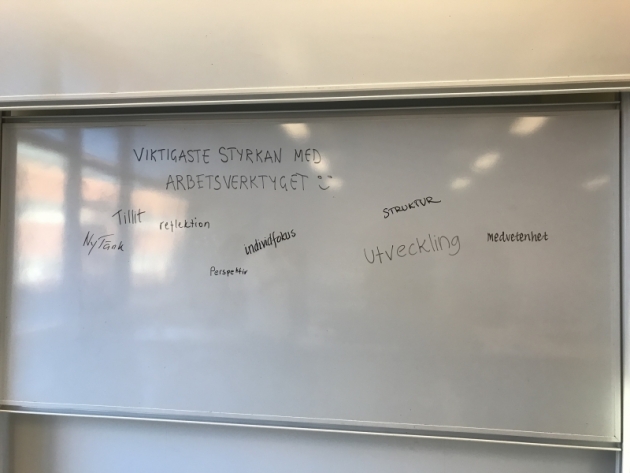 VIKTIGASTE STYRKAN MED
ARBETSVERKTYGET :)
Tillit
reflektion
STRUKTUR
NyTänk
individfokus
utveckling
Medvetenhet
Perspektiv